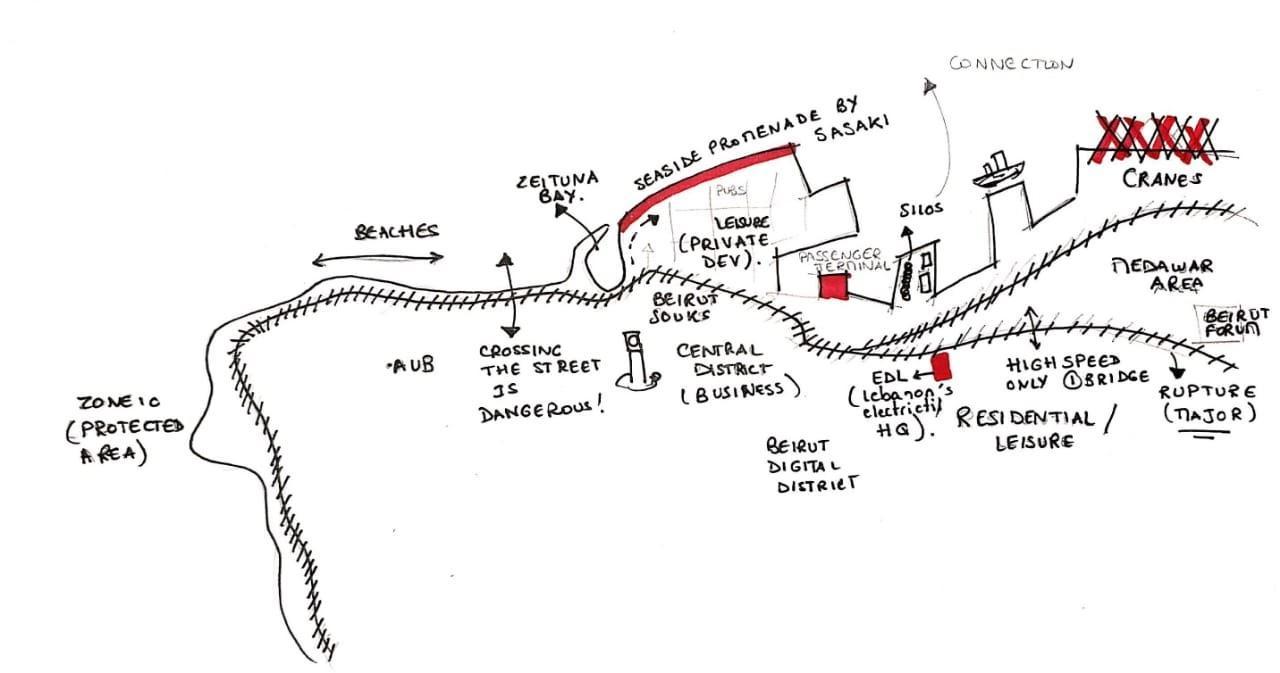 CONNECTION
SEASIDE PROMENADE BY
SASAKI
ZEITUNA
BAY.
PUBS
CRANES
BEACHES
LEISURE
(PRIVATE
DEV).
SILOS
PASSENGER
TERMINAL
MEDAWAR
AREA
BEIRUT
SOUKS
BEIRUT
FORUM
.AUB
CROSSING
THE STREET
IS
DANGEROUS!
CENTRAL
DISTRICT
(BUSINESS)
EDL
(Lebanon's
electricti
HQ).
HIGH SPEED
ONLY 1 BRIDGE
RUPTURE
(MAJOR)
ZONE 10
(PROTECTED
AREA)
RESIDENTIAL /
LEISURE
BEIRUT
DIGITAL
DISTRICT